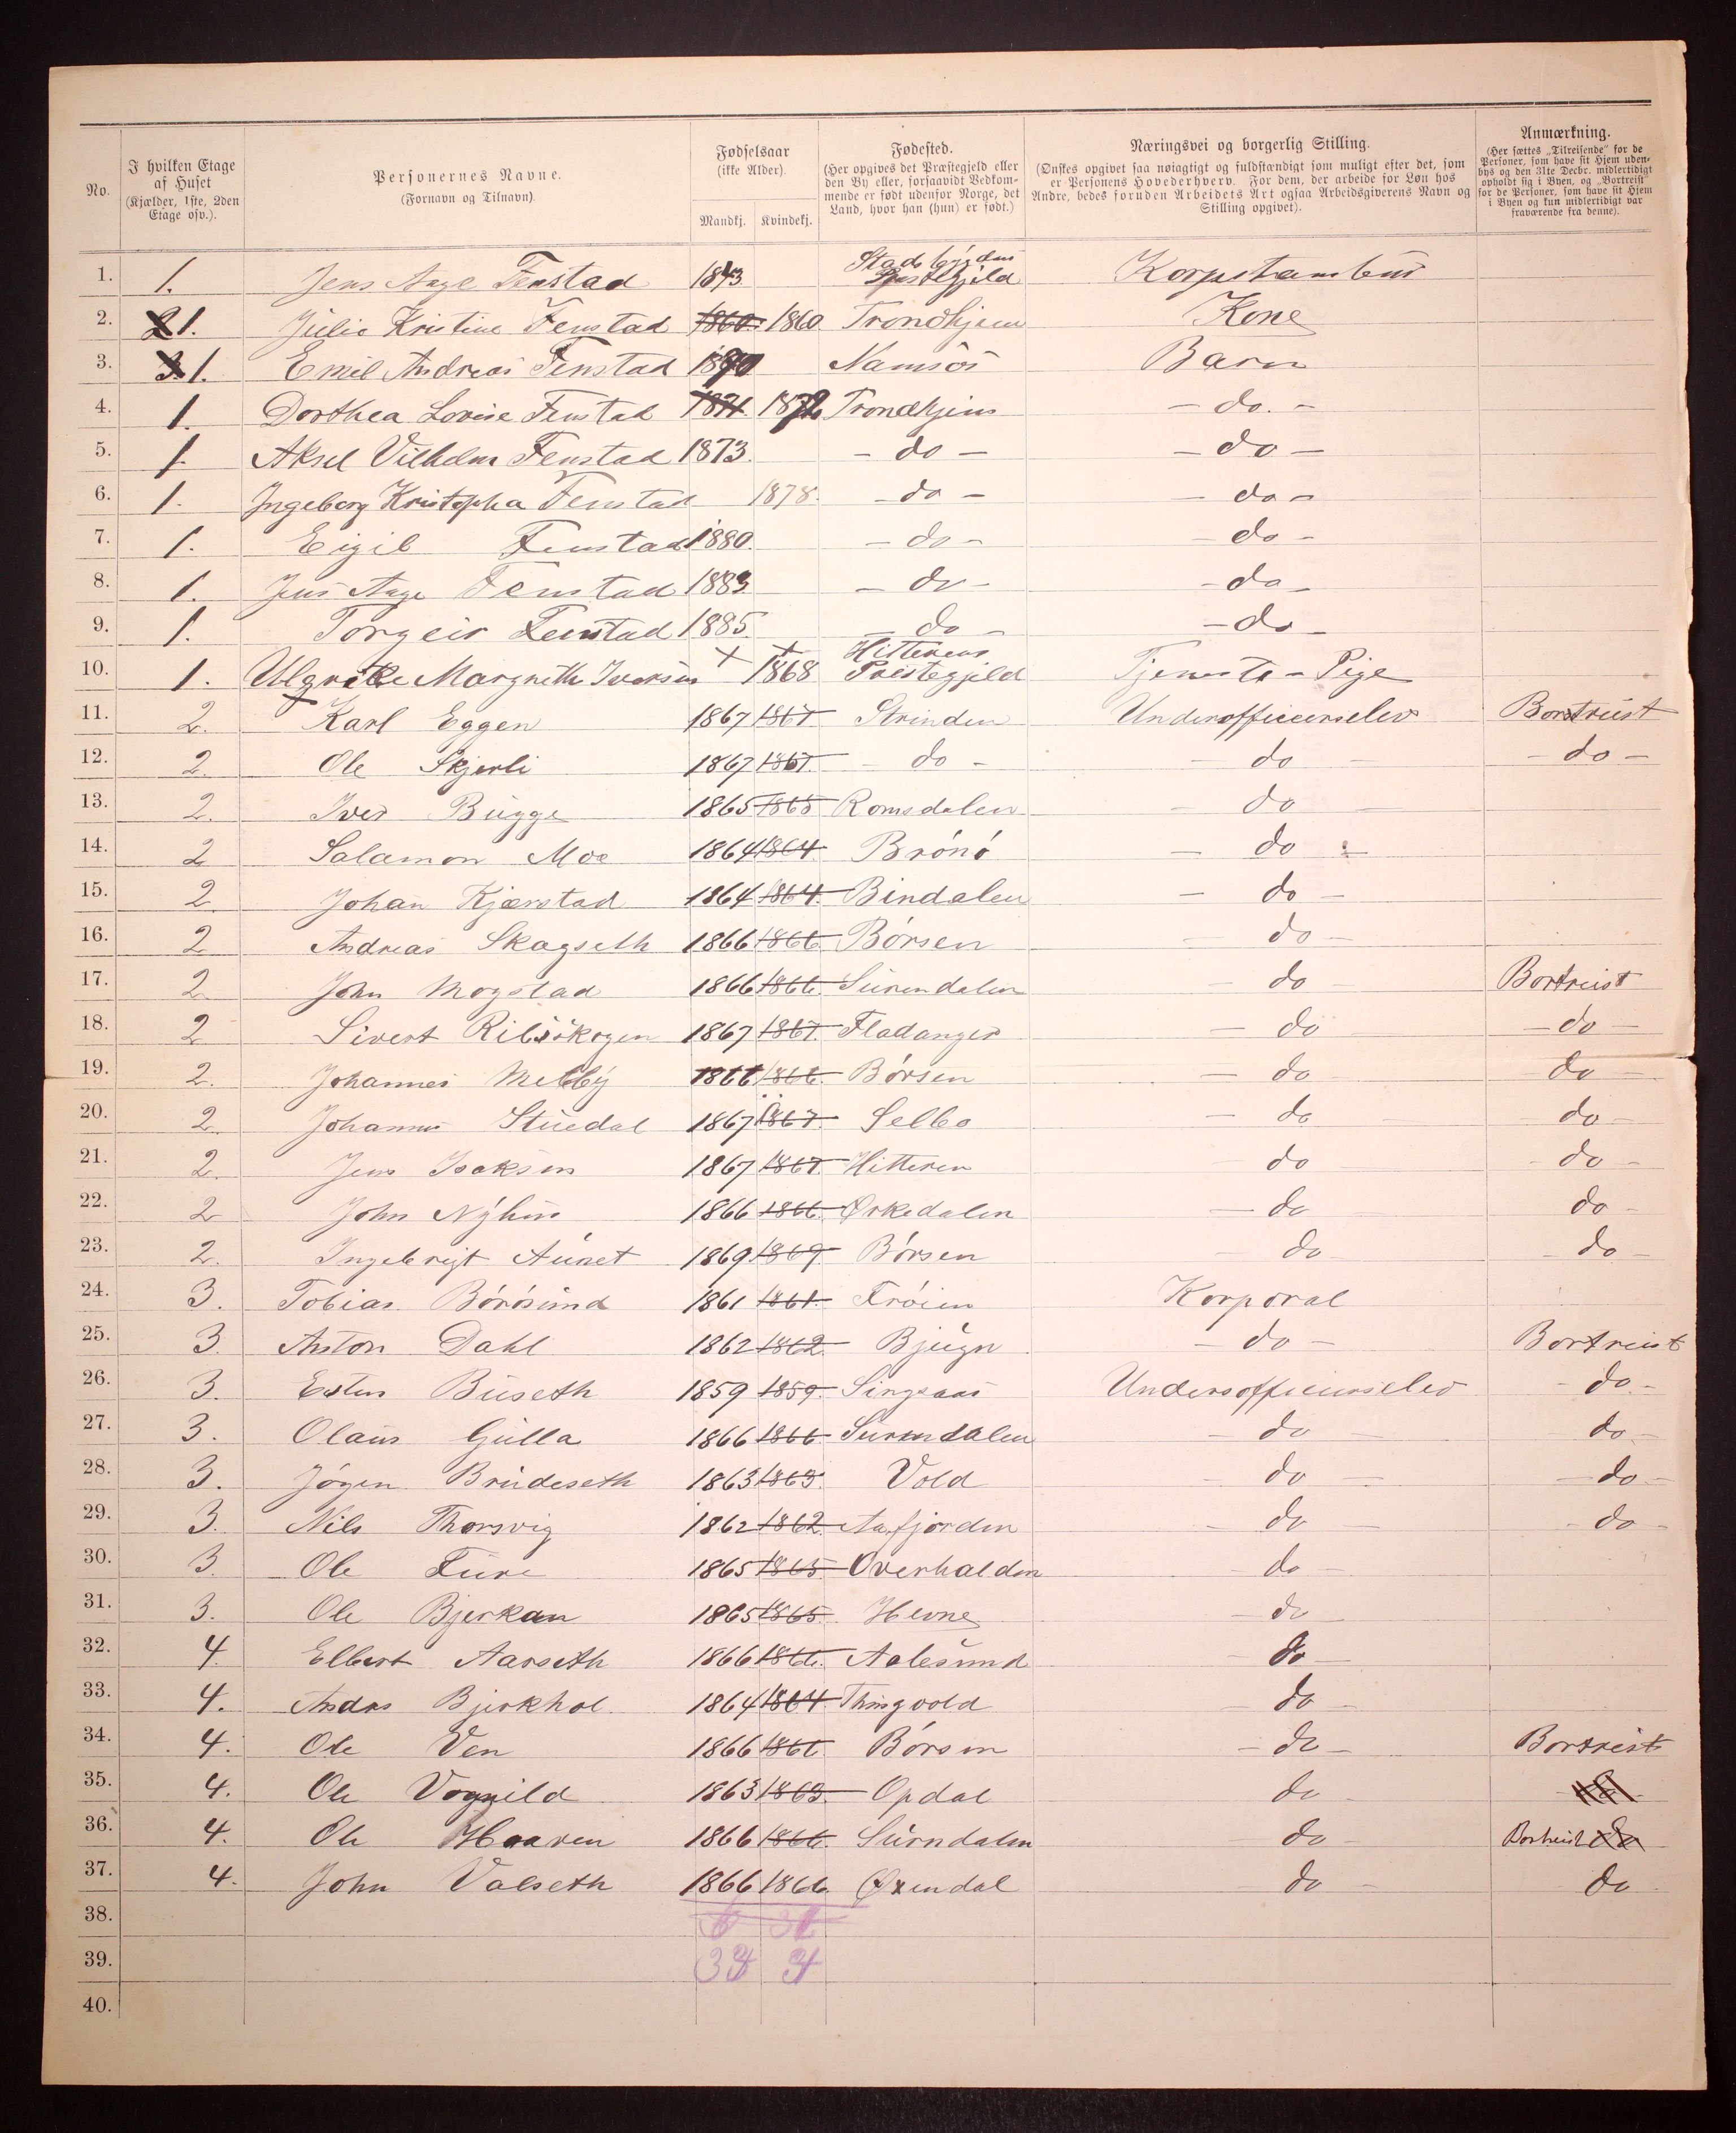 No.
I hvilken Etage af Huset (Kjælder, 1ste, 2den Etage osv.).
Personernes Navne. (Fornavn og Tilnavn).
Fødselsaar (ikke Alder). Mandkj. Kvindekj.
Fødested. (Her opgives det Præstegjeld eller den By eller, forsaavidt Vedkommende er født udenfor Norge, det Land, hvor han (hun) er født.)
Næringsvei og borgerlig Stilling. (Ønskes opgivet saa nøiagtigt og fuldstændigt som muligt efter det, som er Personens Hovederhverv. For dem, der arbeide for Løn hos Andre, bedes foruden Arbeidets Art ogsaa Arbeidsgiverens Navn og Stilling opgivet).
Anmærkning. (Her sættes „Tilreisende" for de Personer, som have sit Hjem udenbys og den 31te Decbr. midlertidigt opholdt sig i Byen, og „Bortreist" for de Personer, som have sit Hjem i Byen og kun midlertidigt var fraværende fra denne).
1. 1. Jens Aage Fenstad 1843. Stadsbygdens Prestegjeld Korpstambur
2. 1. Julie Kristine Fenstad 1860. 1860 Trondhjem Kone
3. 1. Emil Andreas Fenstad 1870 Namsos Barn
4. 1. Dorthea Lovise Fenstad 1871. 1872 Trondhjem - do. -
5. 1. Aksel Vilhelm Fenstad 1873. - do - - do -
6. 1. Ingeborg Kristopha Fenstad 1878. - do - - do -
7. 1. Eigil Fenstad 1880. - do - - do -
8. 1. Jens Aage Fenstad 1883 - do - - do -
9. 1. Torgeir Fenstad 1885. - do - - do -
10. 1. Margrethe Iversen 1868 Hitterens Prestegjeld Tjeneste-Pige
11. 2. Karl Eggen 1867 1867 Strinden Underofficerselev Bortreist
12. 2. Ole Skjerli 1867 1867. - do - do - do -
13. 2. Iver Bugge 1865 1865 Romsdalen - do
14. 2 Salamon Moe 1864 1864 Brönö - do -
15. 2 Johan Kjærstad 1864 1864. Bindalen - do -
16. 2 Andreas Skagseth 1866 1866 Börsen - do -
17. 2 John Mogstad 1866 1866. Surendalen - do - Bortreist
18. 2 Sivert Ribsskogen 1867 1867. Fladanger - do - do -
19. 2. Johannes Melby 1866 1866. Börsen - do do -
20. 2. Johannes Stuedal 1867 1867. Selbo - do do -
21. 2. Jens Isaksen 1867 1867. Hitteren - do - do -
22. 2 John Nyhus 1866 1866. Ørkedalen - do do -
23. 2. Ingebrigt Aunet 1869 1869 Börsen - do - do -
24. 3. Tobias Börösund 1861 1861. Fröien Korporal
25. 3. Anton Dahl 1862 1862. Bjugn - do - Bortreist
26. 3. Esten Buseth 1859 1859. Singsaas Underofficerselev - do. -
27. 3. Olaus Gulla 1866 1866 Surendalen - do do -
28. 3. Jögen Brudeseth 1863 1863. Vold - do - do -
29. 3. Nils Thorsvig 1862 1862. Aafjorden - do - do -
30. 3. Ole Fure 1865 1865 Overhalden do -
31. 3. Ole Bjerkan 1865 1865. Hevne - do
32. 4. Elbert Aarseth 1866 1866. Aalesund - do -
33. 4. Anders Bjerkhol 1864 1864 Thingvold - do -
34. 4. Ole Ven 1866 1866 Börsen - do - Bortreist
35. 4. Ole Vognild 1863 1863. Opdal do -
36. 4. Ole Haaven 1866 1866. Surndalen do - Bortreist do
37. 4. John Valseth 1866 1866. Øxendal - do - do
38.
39. 33 4
40.